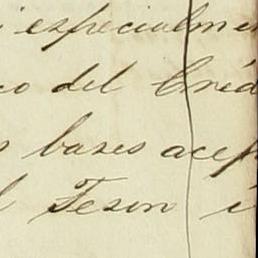 i especialmen
co del Créd
s bases acep
l Teson i